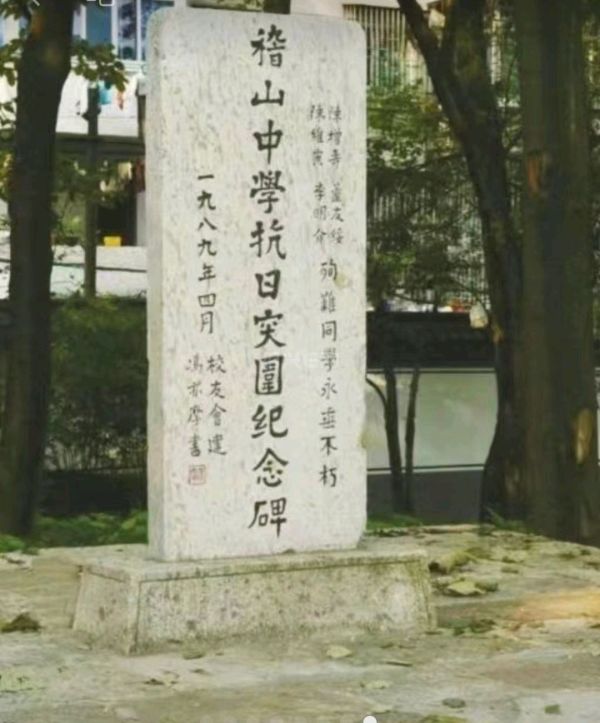 陳增
友綏
陳維
李明介
殉難同學永垂不朽
稽山中學抗日突圍紀念碑
一九八九年四月
校友會建
馮亦摩書